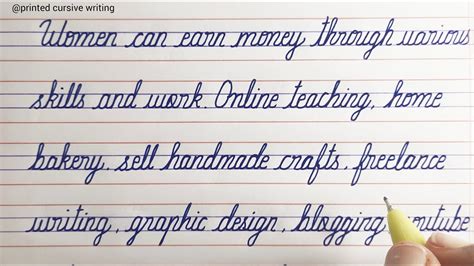 @printed cursive writing
Women can earn money through various
skills and work. Online teaching, home
bakery, sell handmade crafts, freelance
writing, graphic design, blogging, youtube